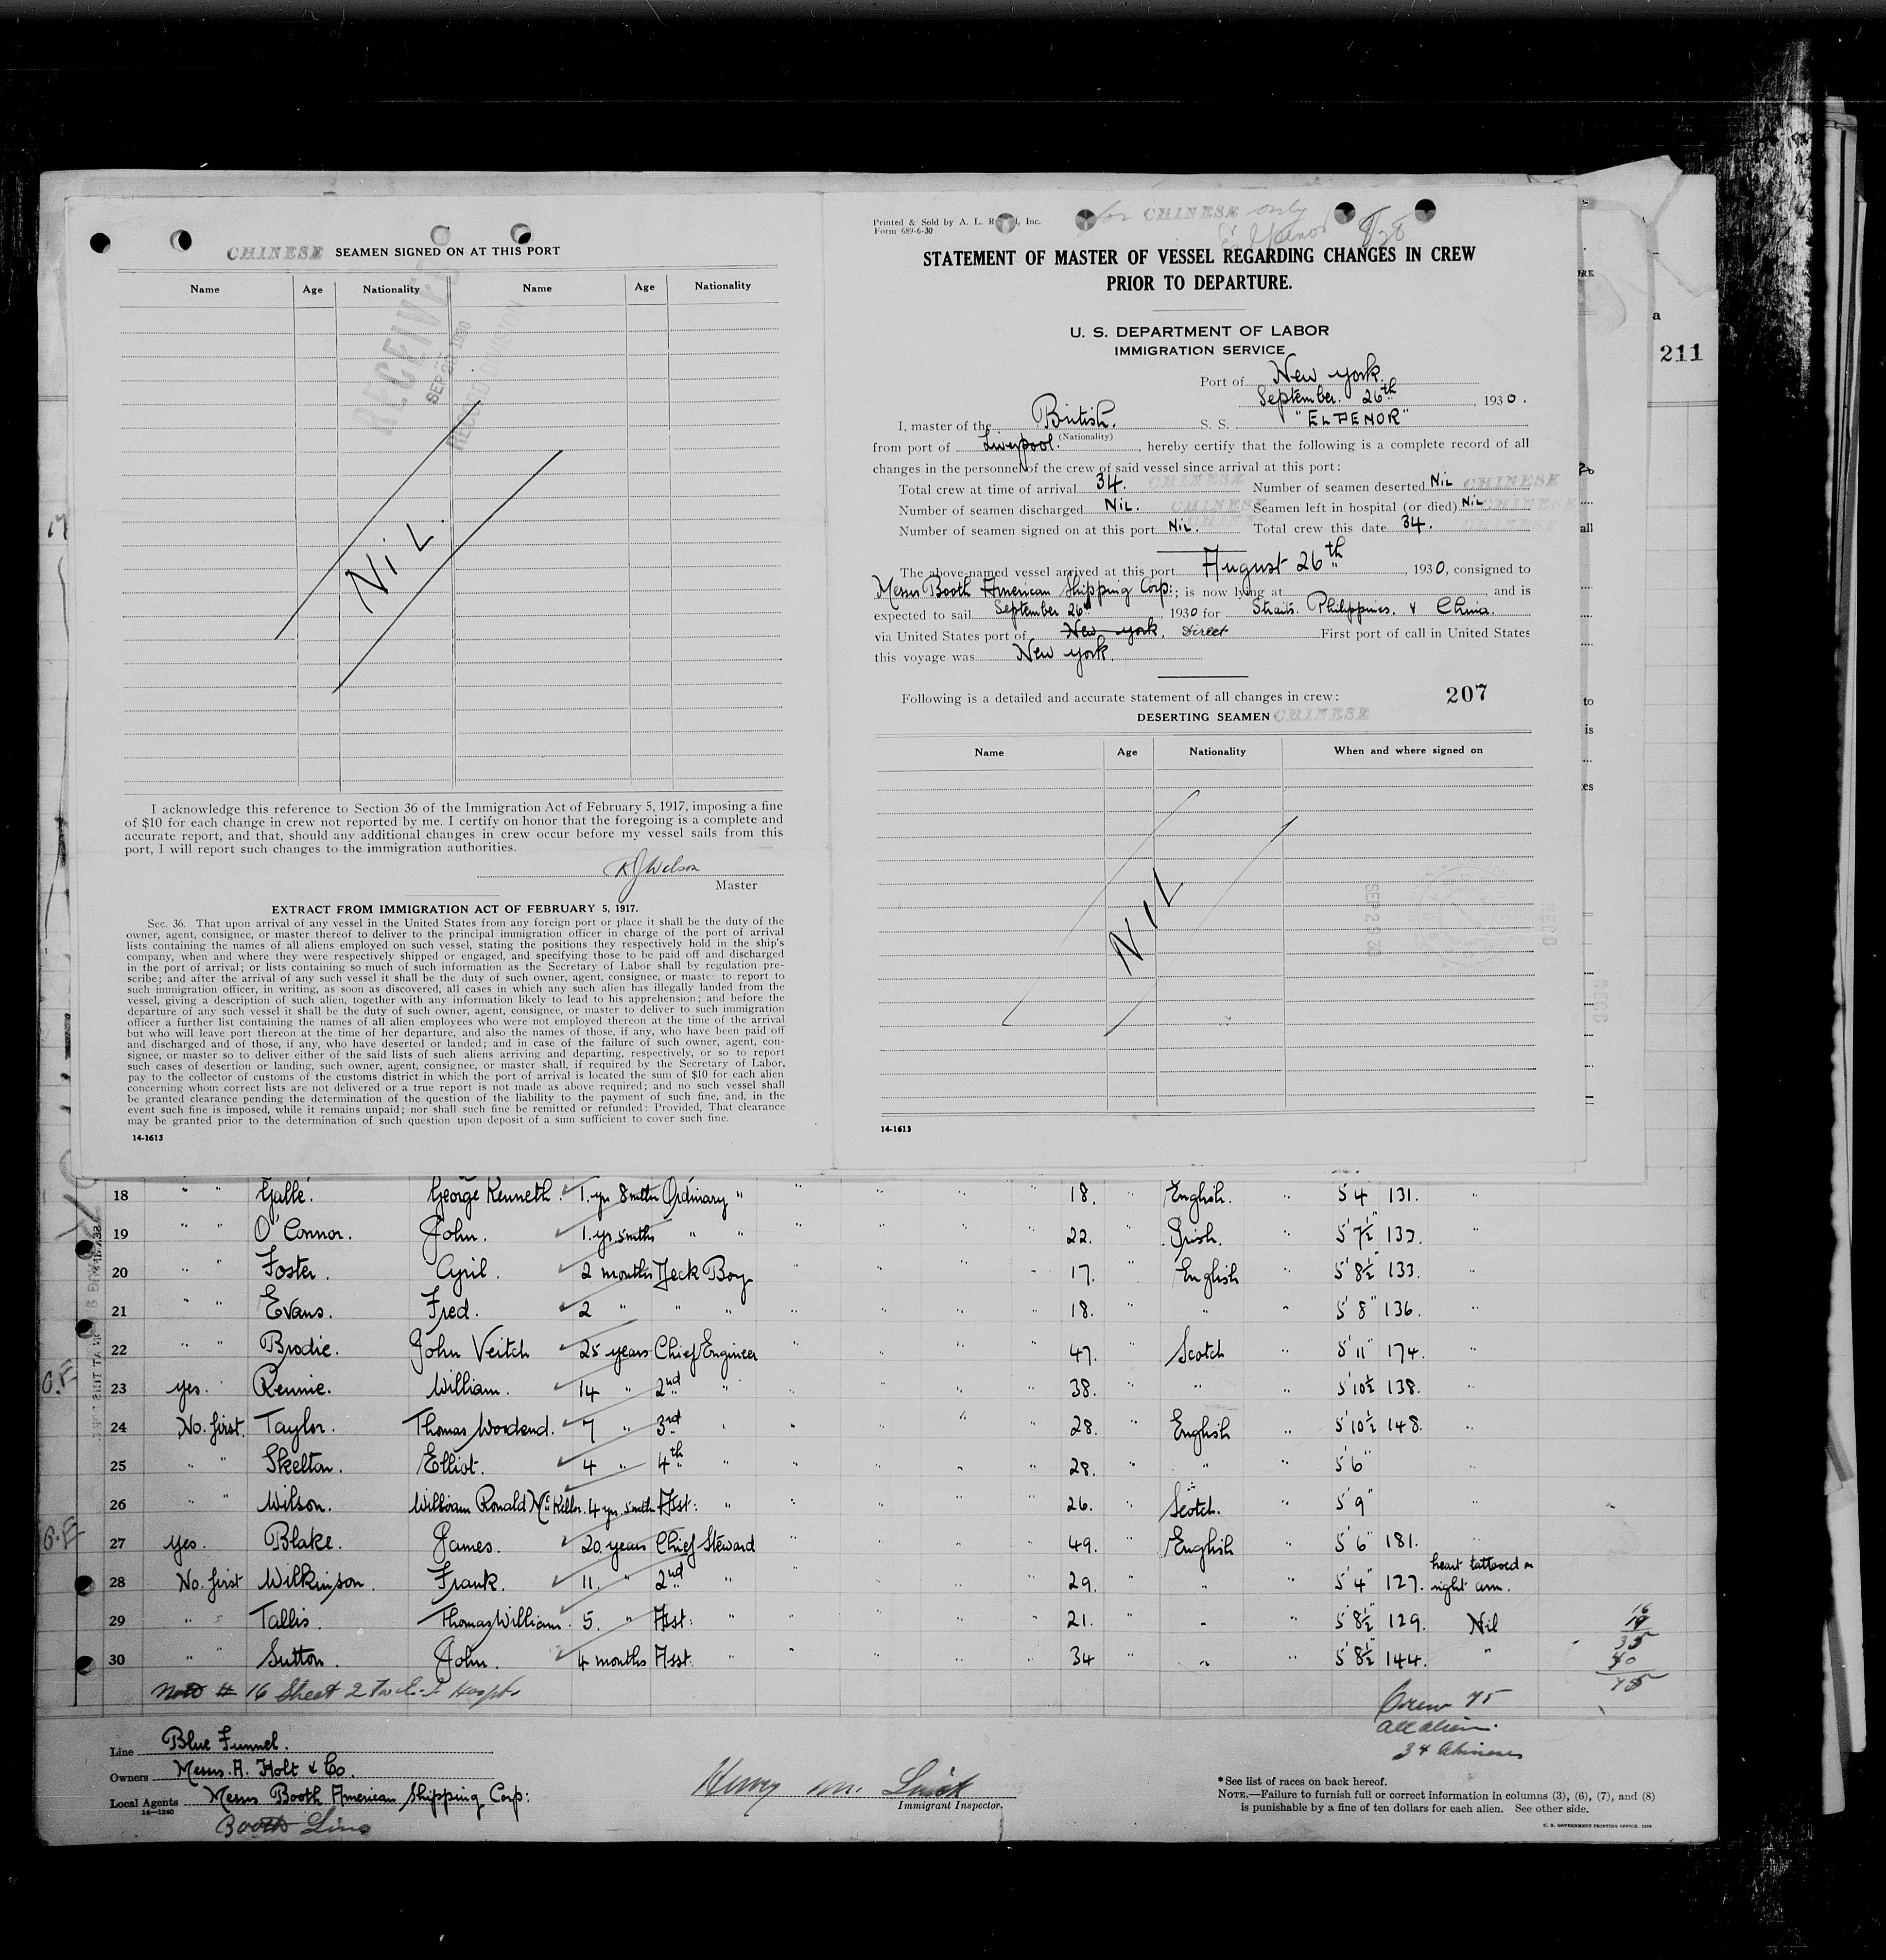 CHINESE SEAMEN SIGNED ON AT THIS PORT
Name Age Nationality Name Age Nationality
RECEIVED
SEP 26 1930
RECORD DIVISION
NiL.
I acknowledge this reference to Section 36 of the Immigration Act of February 5, 1917, imposing a fine
of $10 for each change in crew not reported by me. I certify on honor that the foregoing is a complete and
accurate report, and that, should any additional changes in crew occur before my vessel sails from this
port, I will report such changes to the immigration authorities.
Wilson
Master
EXTRACT FROM IMMIGRATION ACT OF FEBRUARY 5, 1917.
Sec. 36. That upon arrival of any vessel in the United States from any foreign port or place it shall be the duty of the
owner, agent, consignee, or master thereof to deliver to the principal immigration officer in charge of the port of arrival
lists containing the names of all aliens employed on such vessel, stating the positions they respectively hold in the ship's
company, when and where they were respectively shipped or engaged, and specifying those to be paid off and discharged
in the port of arrival; or lists containing so much of such information as the Secretary of Labor shall by regulation pre-
scribe; and after the arrival of any such vessel it shall be the duty of such owner, agent, consignee, or master to report to
such immigration officer, in writing, as soon as discovered, all cases in which any such alien has illegally landed from the
vessel, giving a description of such alien, together with any information likely to lead to his apprehension; and before the
departure of any such vessel it shall be the duty of such owner, agent, consignee, or master to deliver to such immigration
officer a further list containing the names of all alien employees who were not employed thereon at the time of the arrival
but who will leave port thereon at the time of her departure, and also the names of those, if any, who have been paid off
and discharged and of those, if any, who have deserted or landed; and in case of the failure of such owner, agent, con-
signee, or master so to deliver either of the said lists of such aliens arriving and departing, respectively, or so to report
such cases of desertion or landing, such owner, agent, consignee, or master shall, if required by the Secretary of Labor,
pay to the collector of customs of the customs district in which the port of arrival is located the sum of $10 for each alien
concerning whom correct lists are not delivered or a true report is not made as above required; and no such vessel shall
be granted clearance pending the determination of the question of the liability to the payment of such fine, and, in the
event such fine is imposed, while it remains unpaid; nor shall such fine be remitted or refunded: Provided, That clearance
may be granted prior to the determination of such question upon deposit of a sum sufficient to cover such fine.
14-1613
Printed & Sold by A. L. Inc.
Form 689-6-30
for CHINESE only
STATEMENT OF MASTER OF VESSEL REGARDING CHANGES IN CREW
PRIOR TO DEPARTURE.
U. S. DEPARTMENT OF LABOR
IMMIGRATION SERVICE
Port of New York.
September. 26th, 1930.
I, master of the British. S. S. "ELPENOR"
(Nationality)
from port of Liverpool., hereby certify that the following is a complete record of all
changes in the personnel of the crew of said vessel since arrival at this port:
Total crew at time of arrival 34. CHINESE Number of seamen deserted NiL CHINESE
Number of seamen discharged NiL. CHINESE Seamen left in hospital (or died) NiL CHINESE
Number of seamen signed on at this port NiL. CHINESE Total crew this date 34. CHINESE
The above-named vessel arrived at this port August 26th, 1930, consigned to
Messrs Booth American Shipping Corp:; is now lying at , and is
expected to sail September 26th, 1930 for Straits. Philippines. & China.
via United States port of New York. Direct First port of call in United States
this voyage was New York.
Following is a detailed and accurate statement of all changes in crew:
207
DESERTING SEAMEN CHINESE
Name Age Nationality When and where signed on
NiL
SEP 29 30
RECD
14-1613
211
18 " " Gallé. George Kenneth. 1. yr 8 mths Ordinary " " " " " 18. " English. " 5' 4" 131. "
19 " " O'Connor. John. 1. yr. 5 mths " " " " " " 22. " Irish. " 5' 7½" 133. "
20 " " Foster. Cyril. 2 months Deck Boy " " " " 17. " English " 5' 8½" 133. "
21 " " Evans. Fred. 2 " " " " " " " 18. " " " 5' 8" 136. "
22 " " Brodie. John Veitch 25 years Chief Engineer " " " " 47. " Scotch " 5' 11" 174. "
23 yes. Rennie. William. 14 " 2nd " " " " " 38. " " " 5' 10½ 138. "
24 No. first. Taylor. Thomas Woodend. 7 " 3rd " " " " " 28. " English " 5' 10½ 148. "
25 " " Skelton. Elliot. 4 " 4th " " " " " 28. " " " 5' 6" "
26 " " Wilson. William Ronald McKellor. 4 yrs. 5 mths Asst: " " " " " 26. " Scotch. " 5' 9" "
27 yes. Blake. James. 20. years Chief Steward " " " " 49. " English " 5' 6" 181. "
28 No. first Wilkinson. Frank. 11. " 2nd " " " " " 29. " " " 5' 4" 127. heart tattooed on right arm.
29 " " Tallis. Thomas William. 5. " Asst: " " " " " 21. " " " 5' 8½" 129. Nil
30 " " Sutton. John. 4 months Asst. " " " " " 34 " " " 5' 8½" 144. "
16 Sheet 2
Crew 75
all alien.
34 Chinese
Line Blue Funnel.
Owners Messrs. A. Holt & Co.
Local Agents Messrs Booth American Shipping Corp:
14-1240
Booth Line
Immigrant Inspector.
* See list of races on back hereof.
NOTE.—Failure to furnish full or correct information in columns (3), (6), (7), and (8)
is punishable by a fine of ten dollars for each alien. See other side.